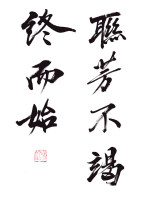 聯芳不竭
終而始